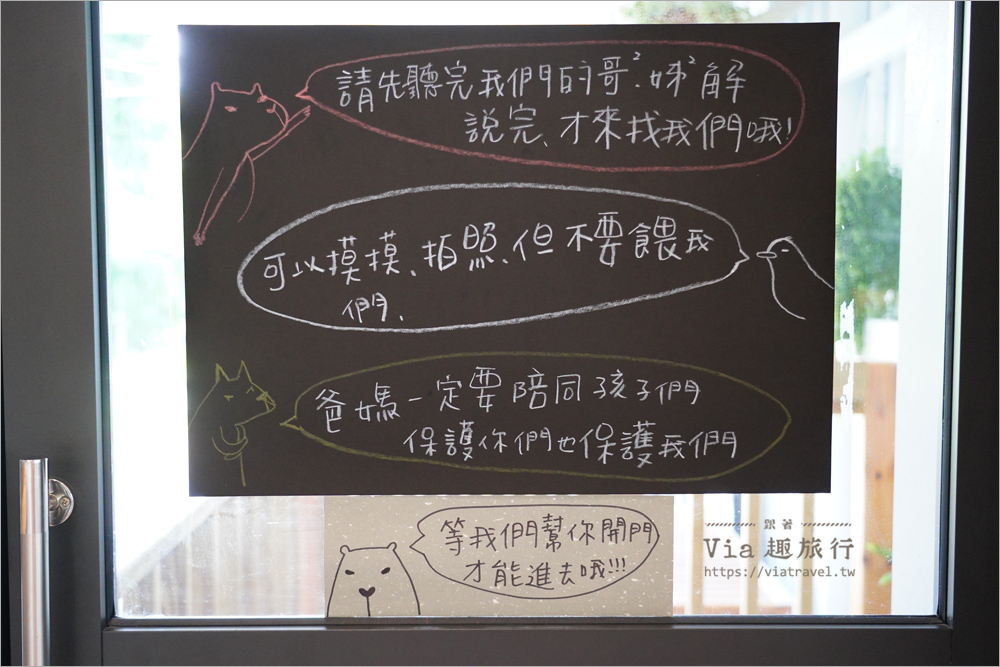 請先聽完我們的哥²、姊²解
說完、才來找我們哦!
可以摸摸、拍照、但不要餵我
們、
爸媽一定要陪同孩子們
保護你們也保護我們
等我們幫你開門
才能進去哦!!!
跟著
Via 趣旅行
https://viatravel.tw